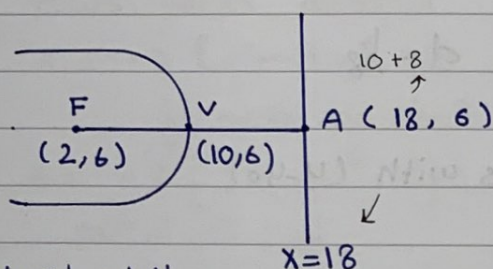 10 + 8
F V A ( 18, 6 )
(2,6) (10,6)
X=18